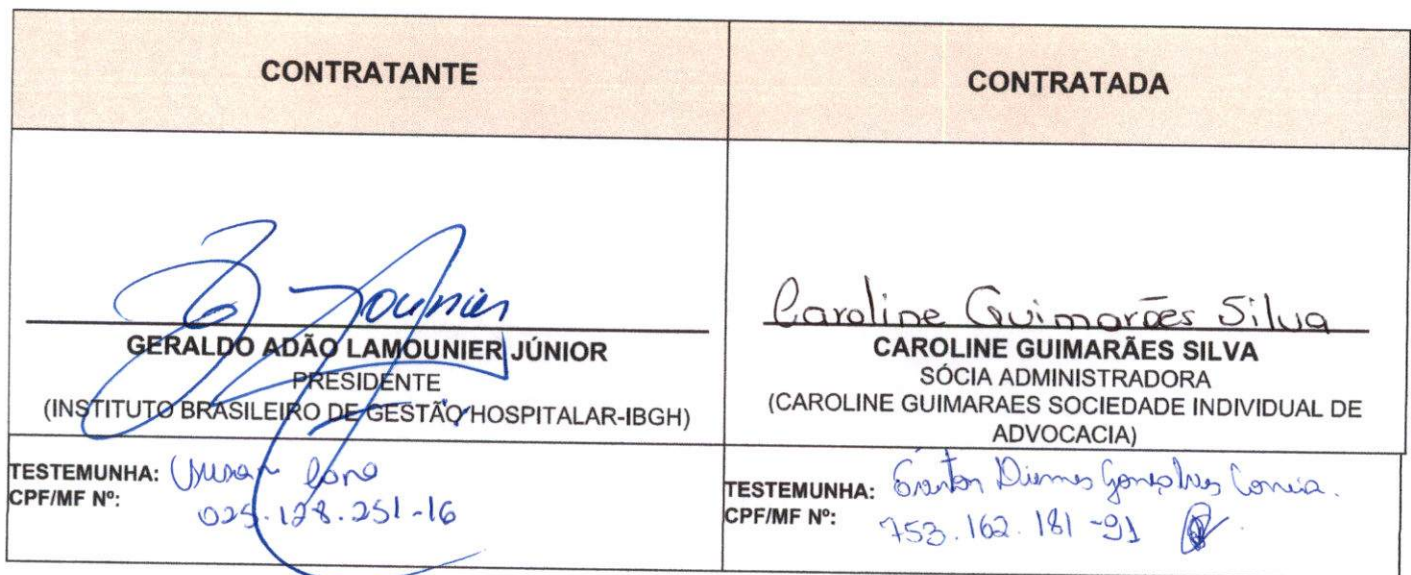 CONTRATANTE
CONTRATADA
GERALDO ADÃO LAMOUNIER JÚNIOR
PRESIDENTE
(INSTITUTO BRASILEIRO DE GESTÃO HOSPITALAR-IBGH)
Caroline Guimarães Silva
CAROLINE GUIMARÃES SILVA
SÓCIA ADMINISTRADORA
(CAROLINE GUIMARAES SOCIEDADE INDIVIDUAL DE
ADVOCACIA)
TESTEMUNHA:
CPF/MF Nº: 025.128.251-16
TESTEMUNHA: Gonçalves Correia.
CPF/MF Nº: 753.162.181-91